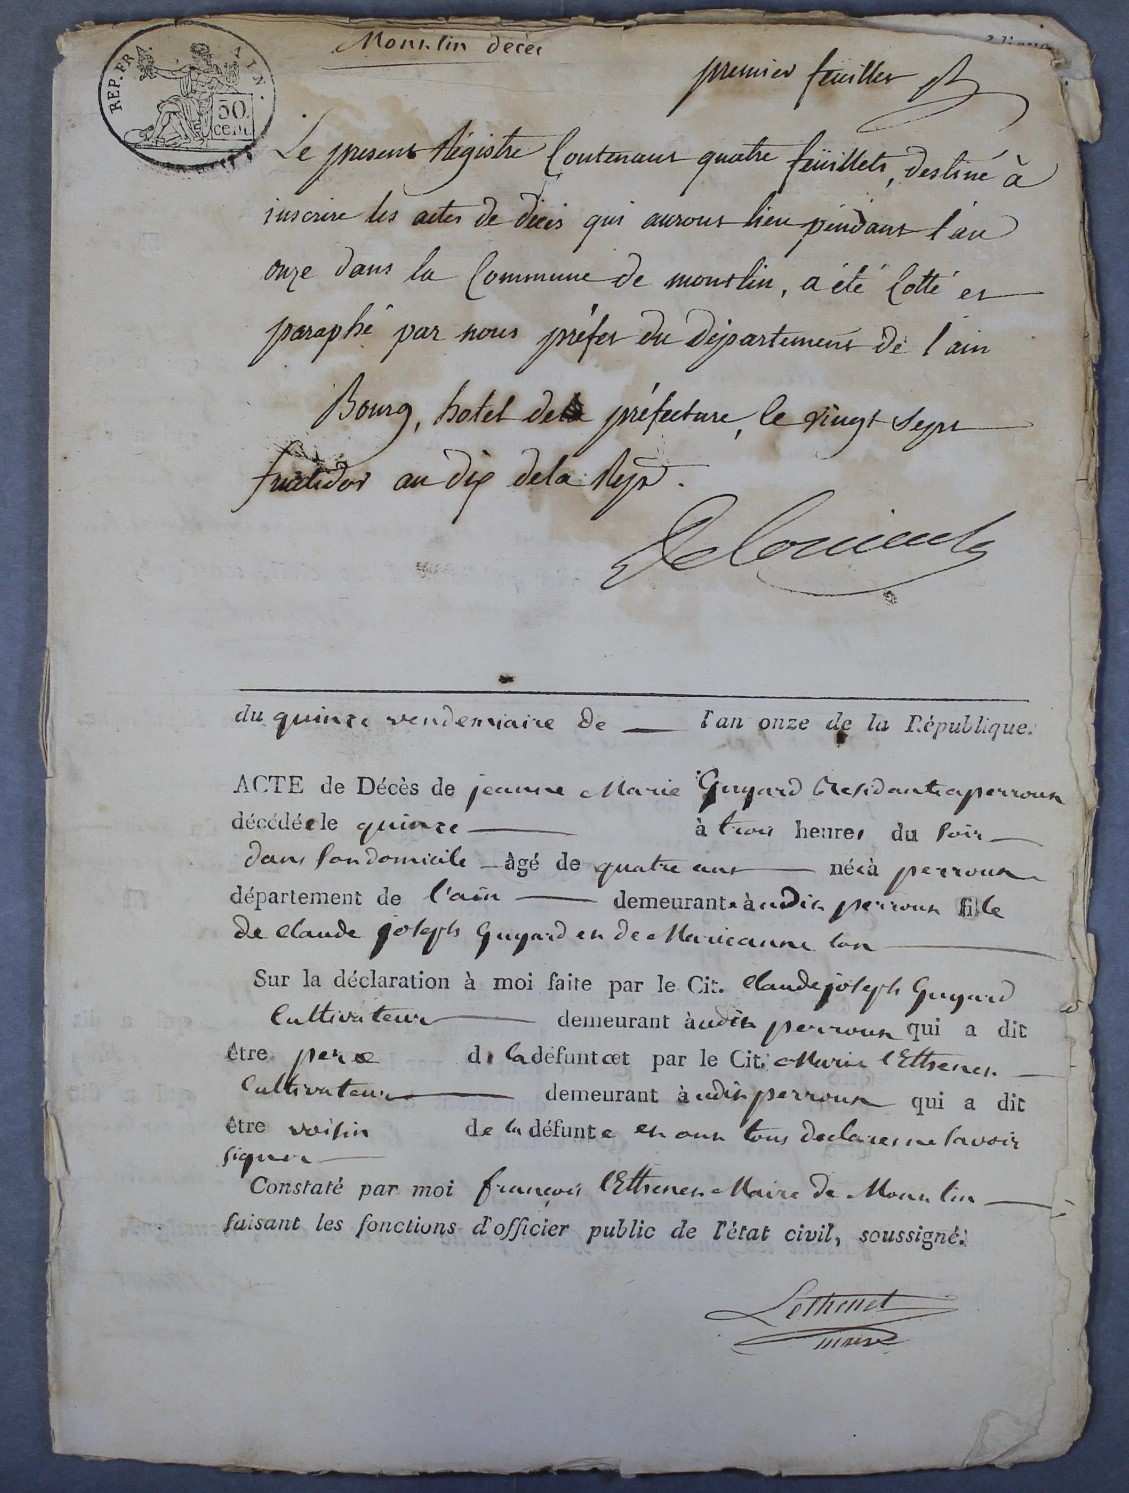 Mourlin décès
REP. FR. AIN.
50 cent.
premier feuillet
Le present Régistre Contenant quatre feüillets, destiné à
inscrire les actes de décès qui auront lieu péndant l'an
onze dans la Commune de mourlin, a été Cotté et
paraphé par nous préfet du département de l'ain
Bourg, hotel dela préfecture, le vingt Sept
fructidor an dix dela Rep.
du quinze vendemiaire de l'an onze de la République.
ACTE de Décès de jeanne Marie Guyard Residante a perroux
décédée le quinze à trois heures du soir
dans son domicile âgé de quatre ans née à perroux
département de l'ain demeurante audit perroux fille
de claude joseph Guyard et de Marieanne
Sur la déclaration à moi faite par le Cit. Claude joseph Guyard
Cultivateur demeurant àudit perroux qui a dit
être pere de la défunte et par le Cit.
Cultivateur demeurant àudit perroux qui a dit
être voisin de la défunte et ont tous declarés ne savoir
signer
Constaté par moi françois Maire de
faisant les fonctions d'officier public de l'état civil, soussigné.
Lethenet
maire